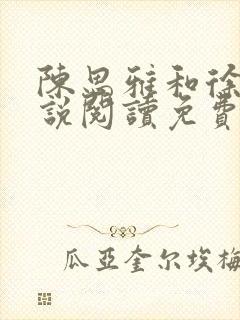 陳思雅和徐
說閱讀免費
瓜亞奎尔埃梅